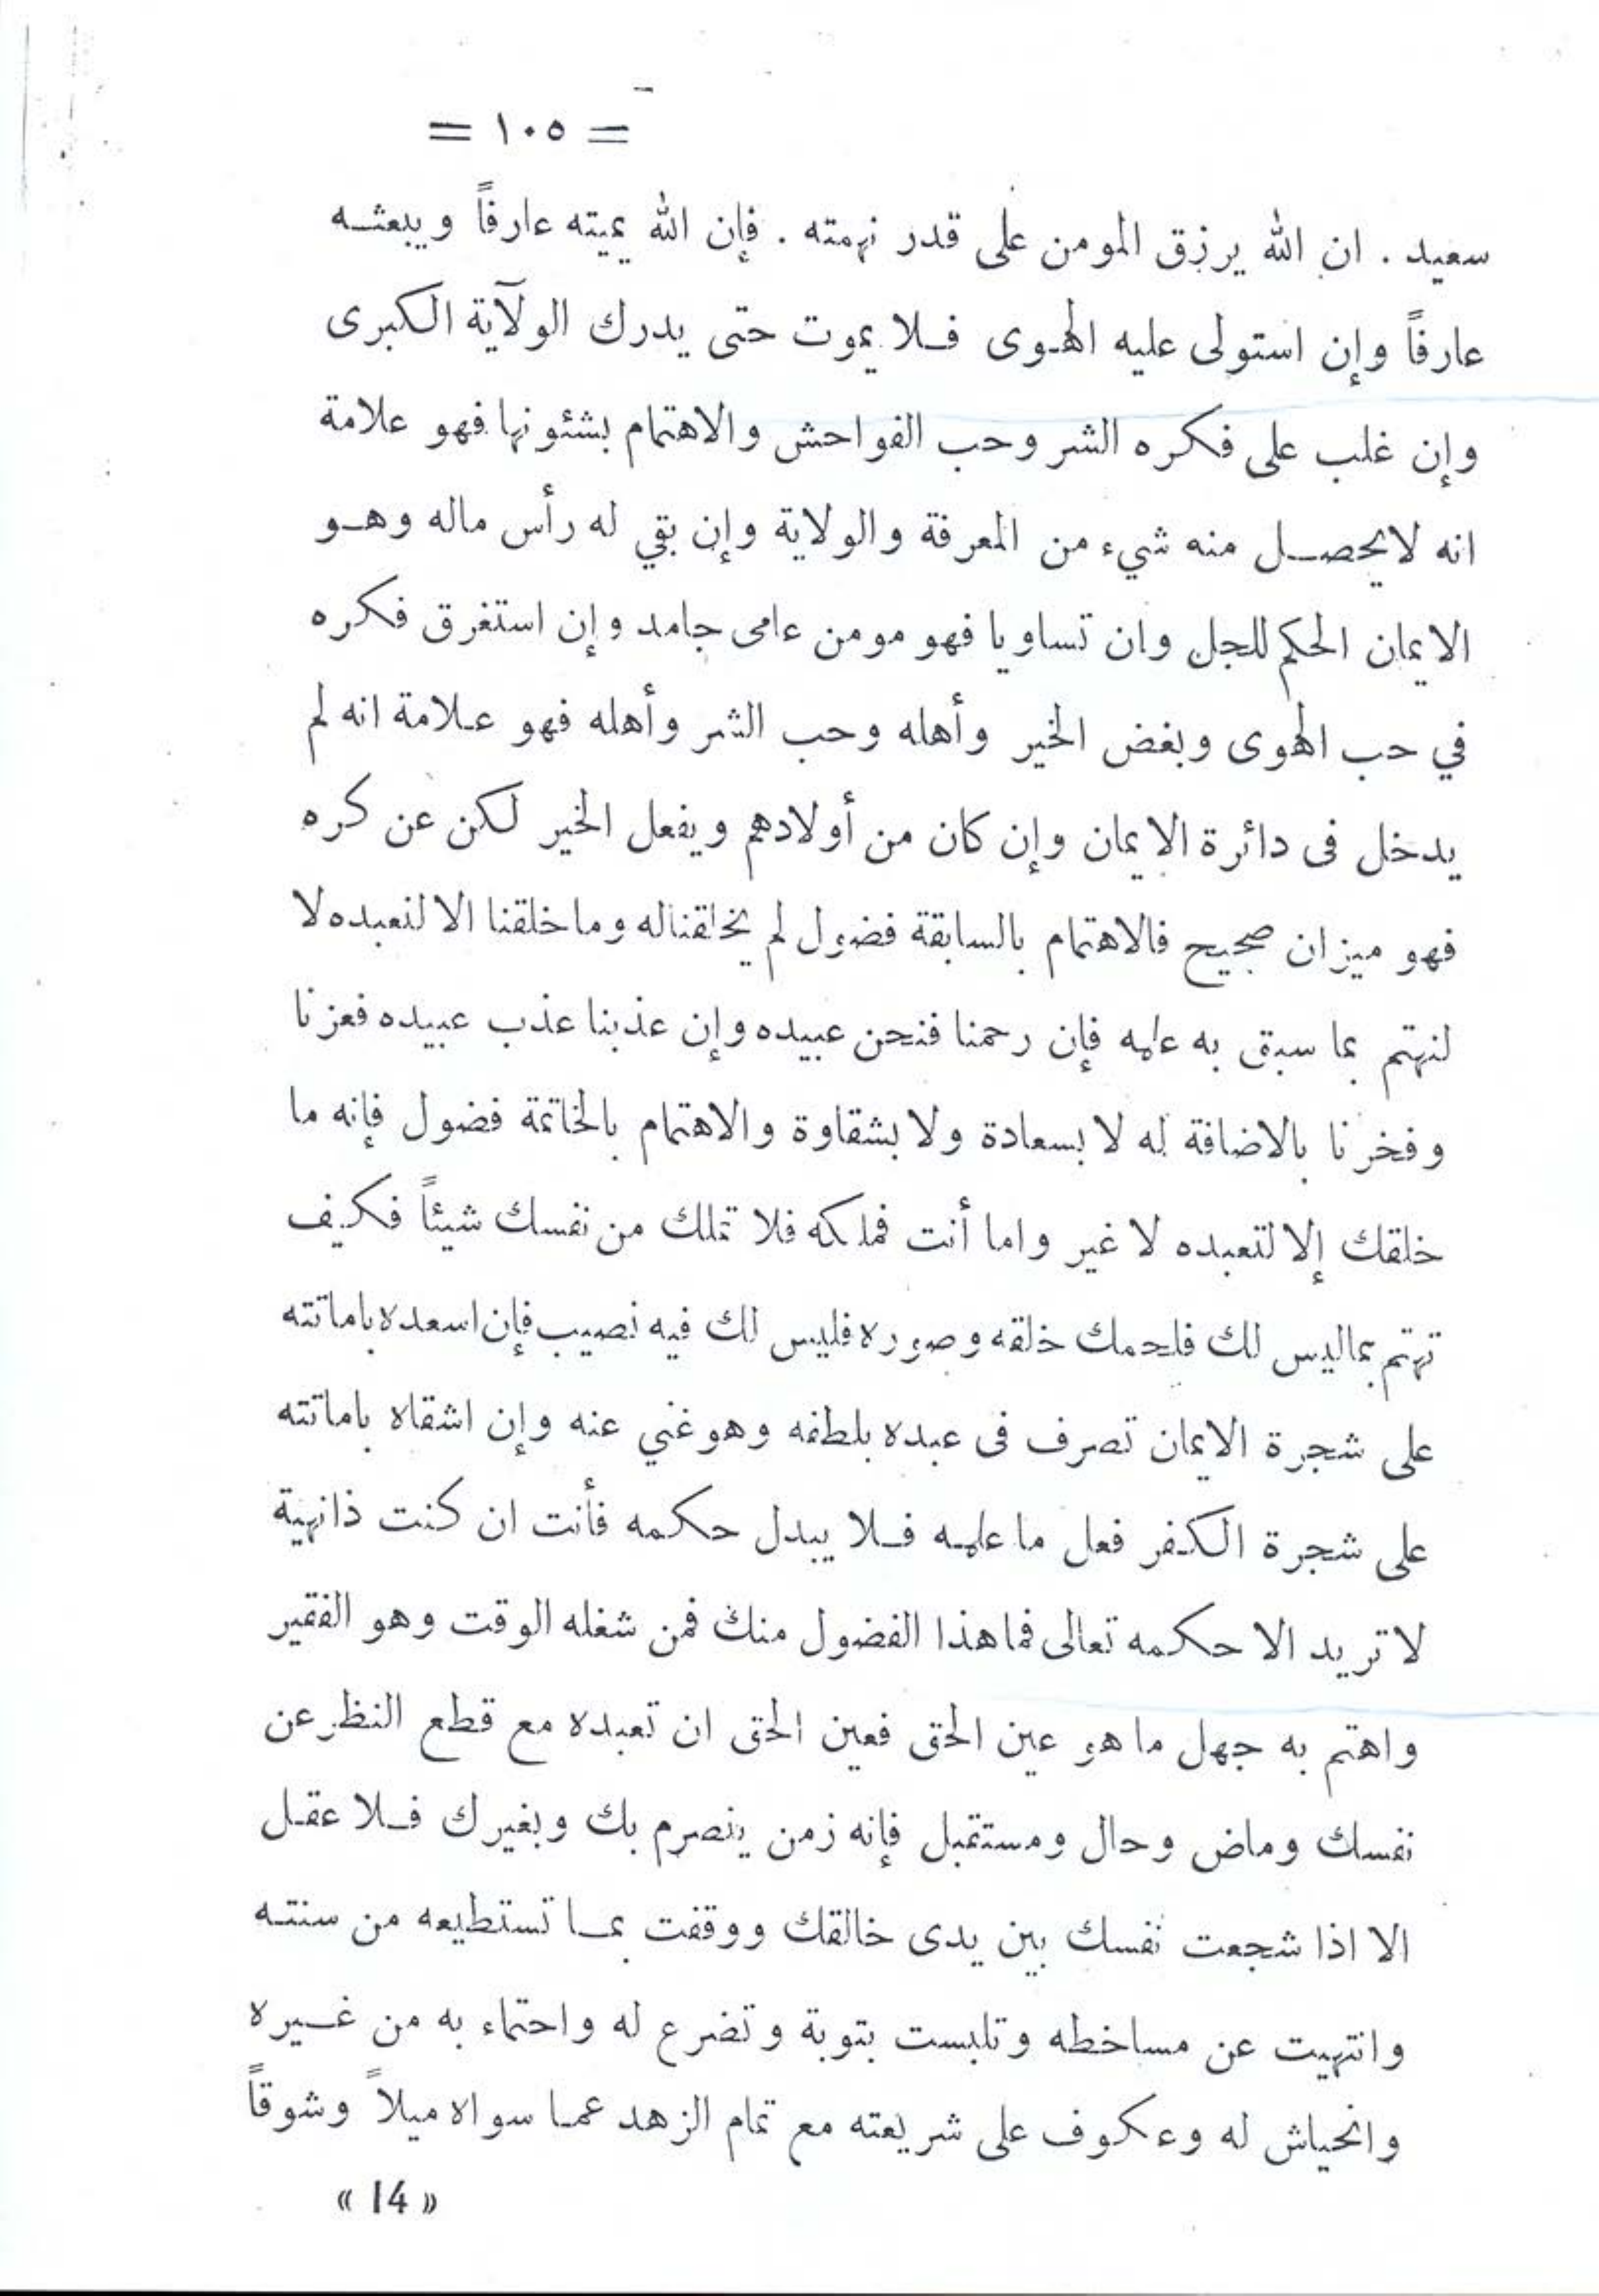 = ١٠٥ =
سعيد . ان الله يرزق المومن على قدر نهمته . فإن الله يميته عارفاً ويبعثه
عارفاً وإن استولى عليه الهوى فلا يموت حتى يدرك الولآية الكبرى
وإن غلب على فكره الشر وحب الفواحش والاهتمام بشئونها فهو علامة
انه لا يحصل منه شيء من المعرفة والولاية وإن بقي له رأس ماله وهو
الايمان الحكم للجل وان تساويا فهو مومن عامى جامد وإن استغرق فكره
في حب الهوى وبغض الخير وأهله وحب الشر وأهله فهو علامة انه لم
يدخل فى دائرة الايمان وإن كان من أولادهم ويفعل الخير لكن عن كره
فهو ميزان صحيح فالاهتمام بالسابقة فضول لم يخلقنا له وما خلقنا الا لنعبده لا
لنهتم بما سبق به علمه فإن رحمنا فنحن عبيده وإن عذبنا عذب عبيده فعزنا
وفخرنا بالاضافة له لا بسعادة ولا بشقاوة والاهتمام بالخاتمة فضول فإنه ما
خلقك إلا لتعبده لا غير واما أنت فملكه فلا تملك من نفسك شيئاً فكيف
تهتم بماليس لك فلحمك خلقه وصوره فليس لك فيه نصيب فإن اسعده باماتته
على شجرة الايمان تصرف فى عبده بلطفه وهو غني عنه وإن اشقاه باماتته
على شجرة الكفر فعل ما علمه فلا يبدل حكمه فأنت ان كنت ذانهية
لا تريد الا حكمه تعالى فما هذا الفضول منك فمن شغله الوقت وهو الفقير
واهتم به جهل ما هو عين الحق فعين الحق ان تعبده مع قطع النظر عن
نفسك وماض وحال ومستقبل فإنه زمن ينصرم بك وبغيرك فلا عقل
الا اذا شجعت نفسك بين يدى خالقك ووقفت بما تستطيعه من سنته
وانتهيت عن مساخطه وتلبست بتوبة وتضرع له واحتماء به من غيره
وانحياش له وعكوف على شريعته مع تمام الزهد عما سواه ميلاً وشوقاً
« 14 »